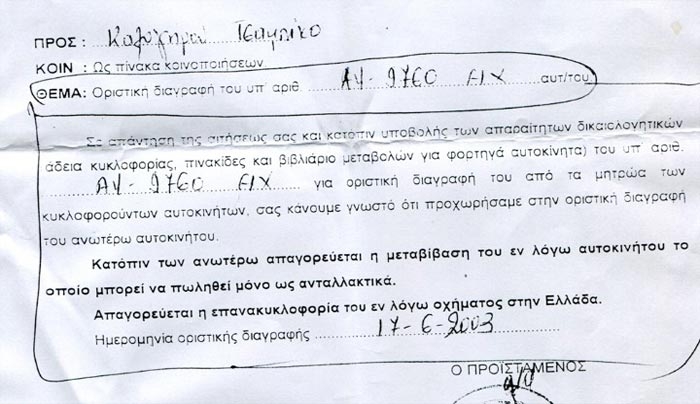 ΠΡΟΣ :
ΚΟΙΝ : Ως πίνακα κοινοποιήσεων.
ΘΕΜΑ: Οριστική διαγραφή του υπ' αριθ. ΑΥ-9760 ΕΙΧ αυτ/του
Σε απάντηση της αιτήσεως σας και κατοπιν υποβολής των απαραίτητων δικαιολογητικών
άδεια κυκλοφορίας, πινακίδες και βιβλιάριο μεταβολών για φορτηγά αυτοκίνητα) του υπ αριθ.
ΑΥ-9760 ΕΙΧ για οριστική διαγραφή του από τα μητρώα των
κυκλοφορούντων αυτοκινήτων, σας κάνουμε γνωστό ότι προχωρήσαμε στην οριστική διαγραφή
του ανωτέρω αυτοκινήτου.
Κατόπιν των ανωτέρω απαγορεύεται η μεταβίβαση του εν λόγω αυτοκινήτου το
οποίο μπορεί να πωληθεί μόνο ως ανταλλακτικά.
Απαγορεύεται η επανακυκλοφορία του εν λόγω οχήματος στην Ελλάδα.
Ημερομηνία οριστικής διαγραφής 17-6-2003
Ο ΠΡΟΪΣΤΑΜΕΝΟΣ